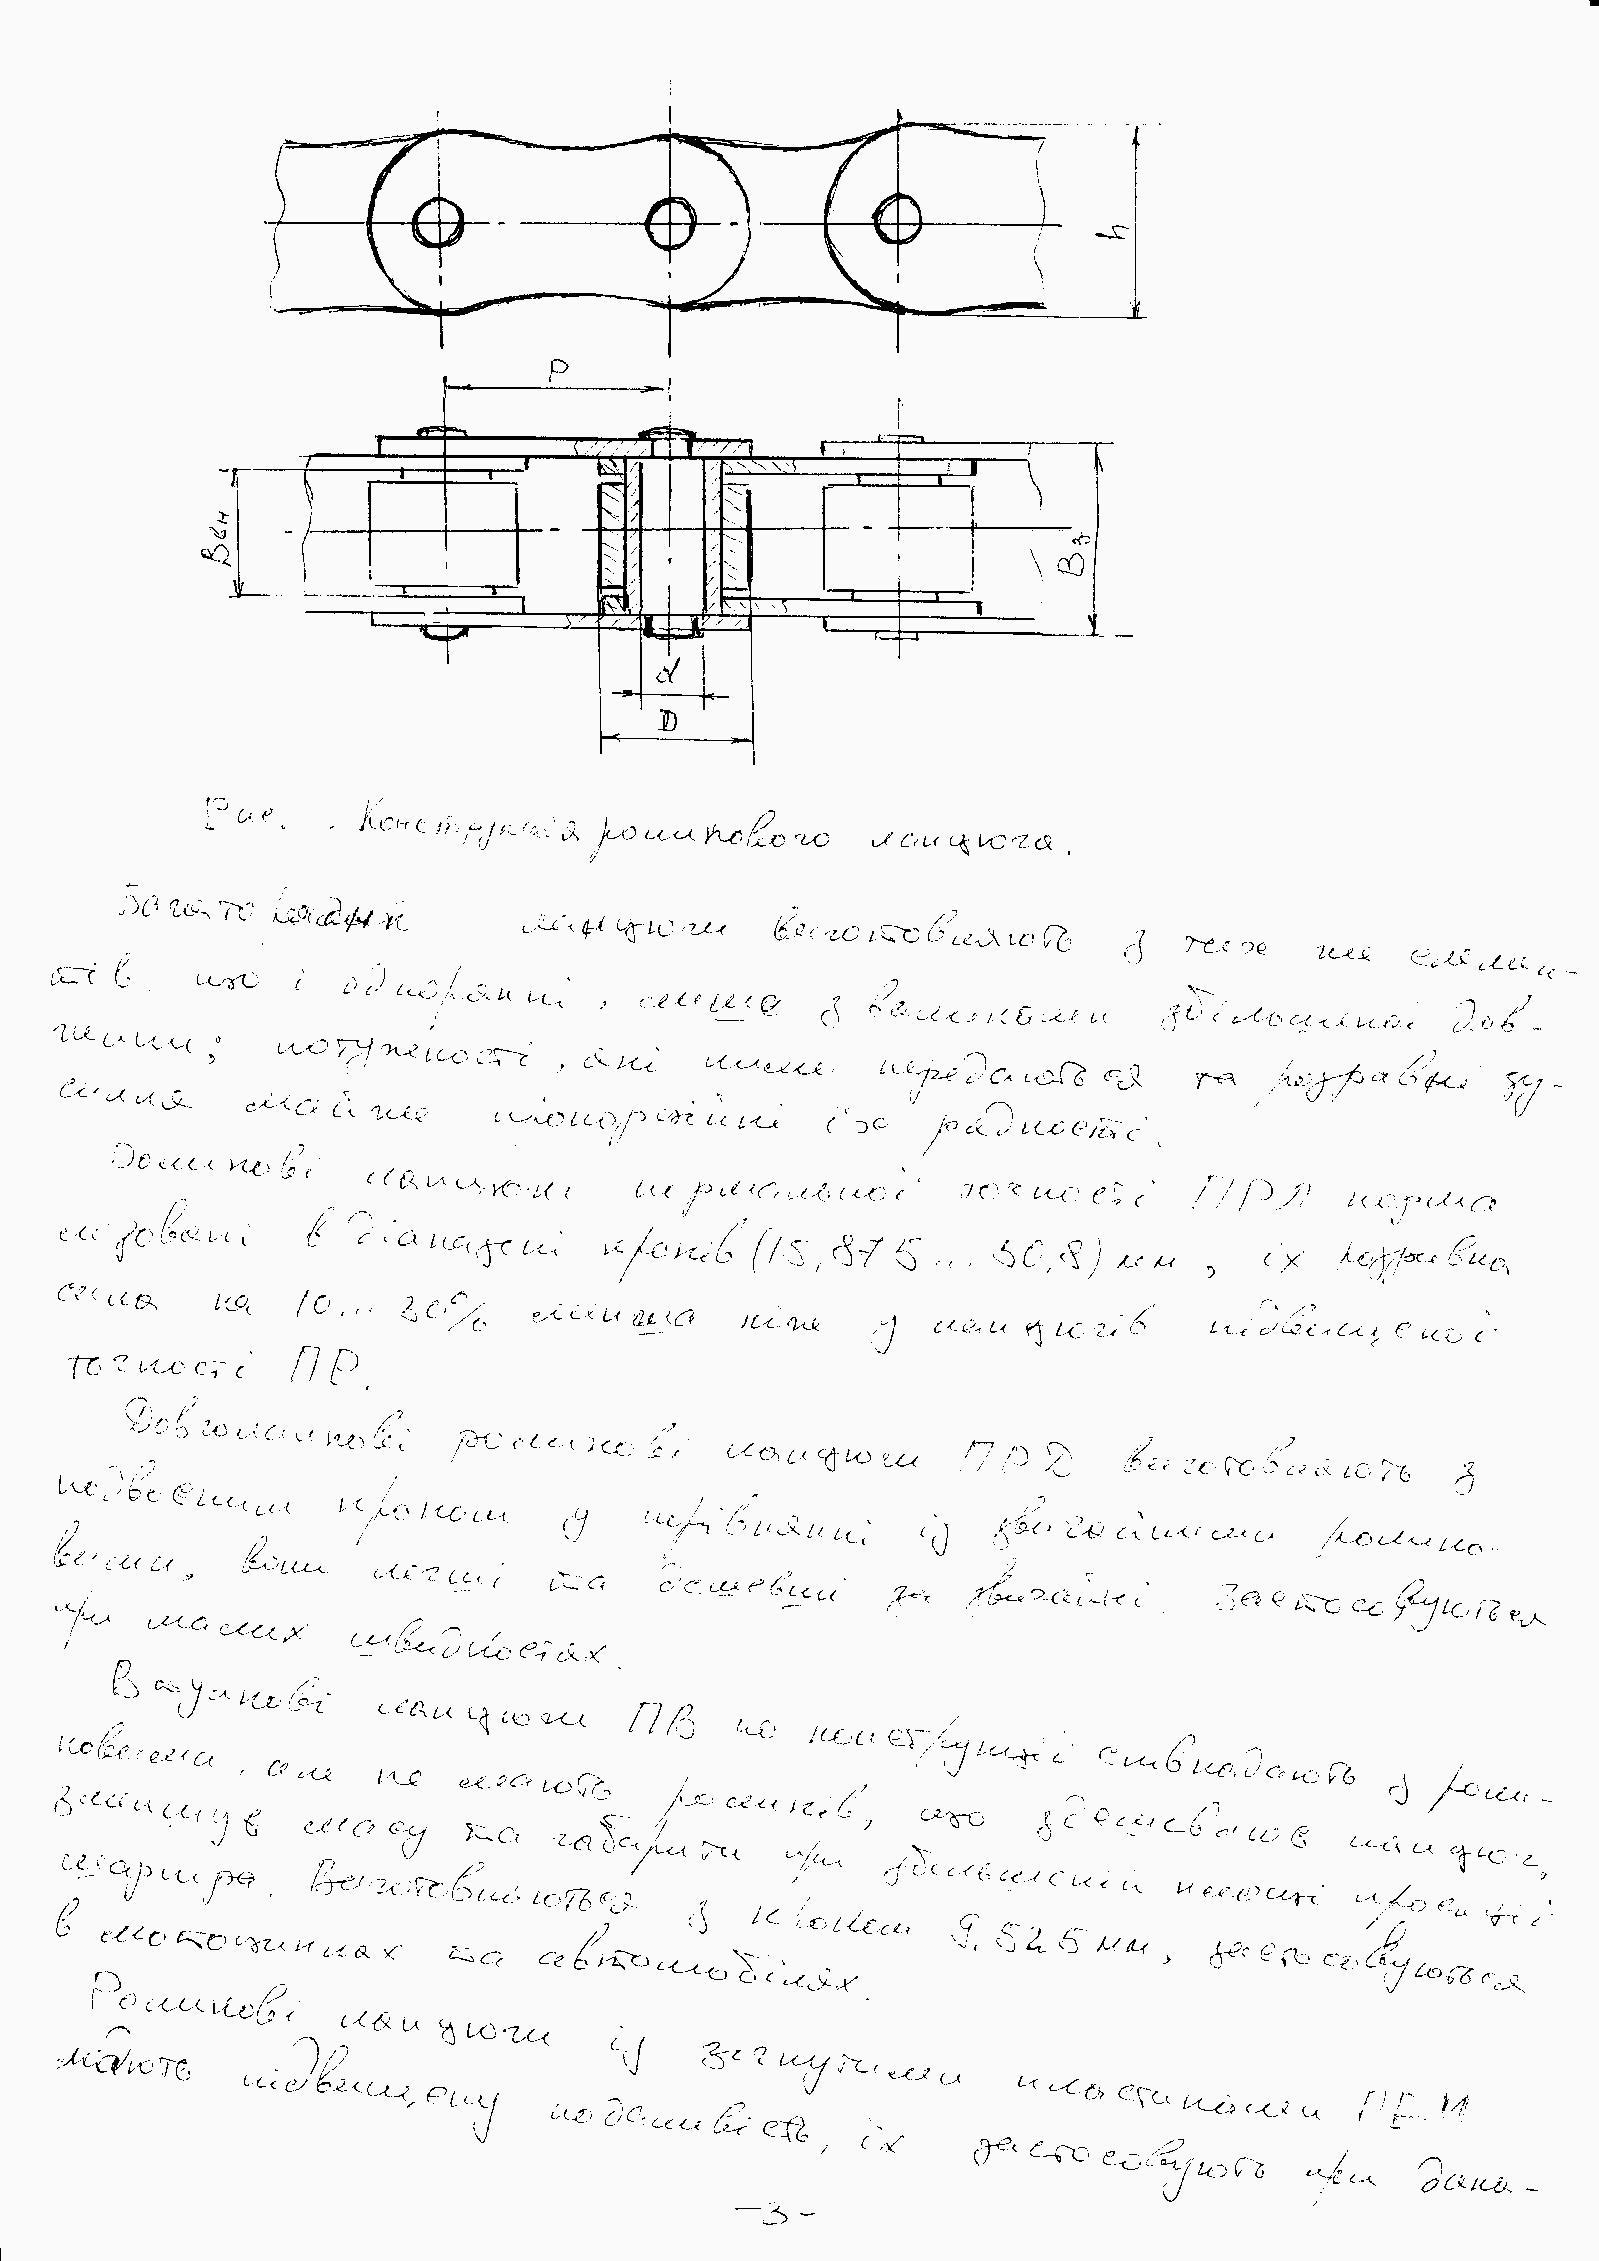 h
P
Ввн
Вз
d
D
Рис. . Конструкція роликового ланцюга.
Багаторядні ланцюги виготовляють з тих же елемен-
тів, що і однорядні, лише з валиками збільшеної дов-
жини; потужності, які ними передаються та розривні зу-
силля майже пропорційні їх рядності.
Роликові ланцюги нормальної точності ПРЛ норма
лізовані в діапазоні кроків (15,875...50,8) мм, їх розривна
сила на 10...30% менша ніж у ланцюгів підвищеної
точності ПР.
Довголанкові роликові ланцюги ПРД виготовляють з
подвоєним кроком у порівнянні із звичайними ролико-
вими, вони легші та дешевші за звичайні. Застосовуються
при малих швидкостях.
Втулкові ланцюги ПВ по конструкції співпадають з роли-
ковими, але не мають роликів, що здешевлює ланцюг,
зменшує масу та габарити при збільшеній площі проекції
шарніра. Виготовляються з кроком 9.525 мм, застосовуються
в мотоциклах та автомобілях.
Роликові ланцюги із зігнутими пластинами
мають підвищену податливість, їх застосовують при дина-
-3-